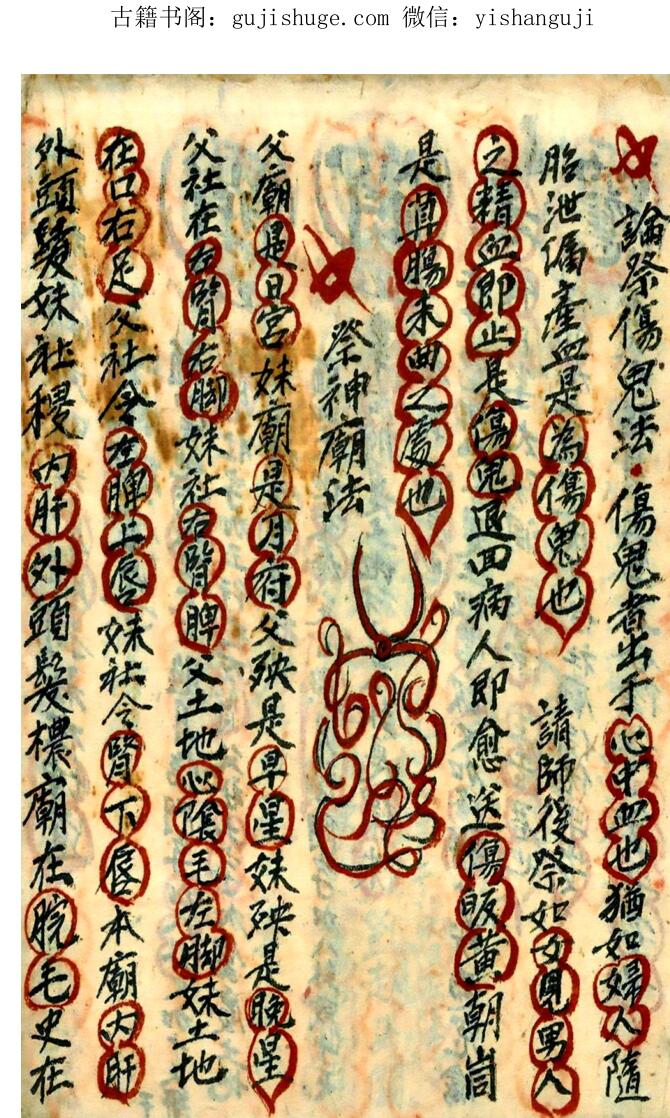 古籍书阁：gujishuge.com 微信：yishanguji
論祭傷鬼法·傷鬼者出于心中血也猶如婦人隨
胎泄漏產血是為傷鬼也 請師後祭如女見男人
之精血即止是傷鬼退回病人即愈送傷皈黃朝峝
是草腸未曲之處也
祭神廟法
父廟是日宮妹廟是月府父殃是早星妹殃是晚星
父社在右臂右脚妹社右臂脾父土地心陰毛左脚妹土地
在口右足父社令左脾上唇妹社令腎下唇本廟內肝
外頭髮妹社稷內肝外頭髮檂廟在脘毛史在